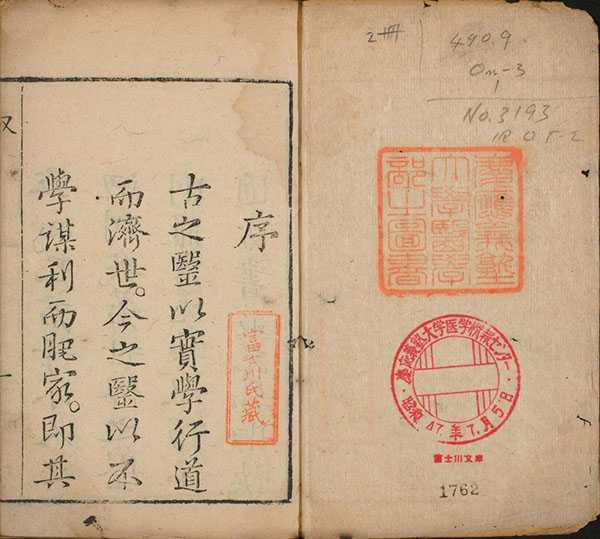 2冊
490.9
On-3
1
No.3193
慶應義塾
大學醫學
部之圖書
慶応義塾大学医学情報センター
・昭和47年7月5日・
富士川文庫
1762
序
富士川氏藏
古之毉以實學行道
而濟世。今之毉以不
學謀利而肥家。即其